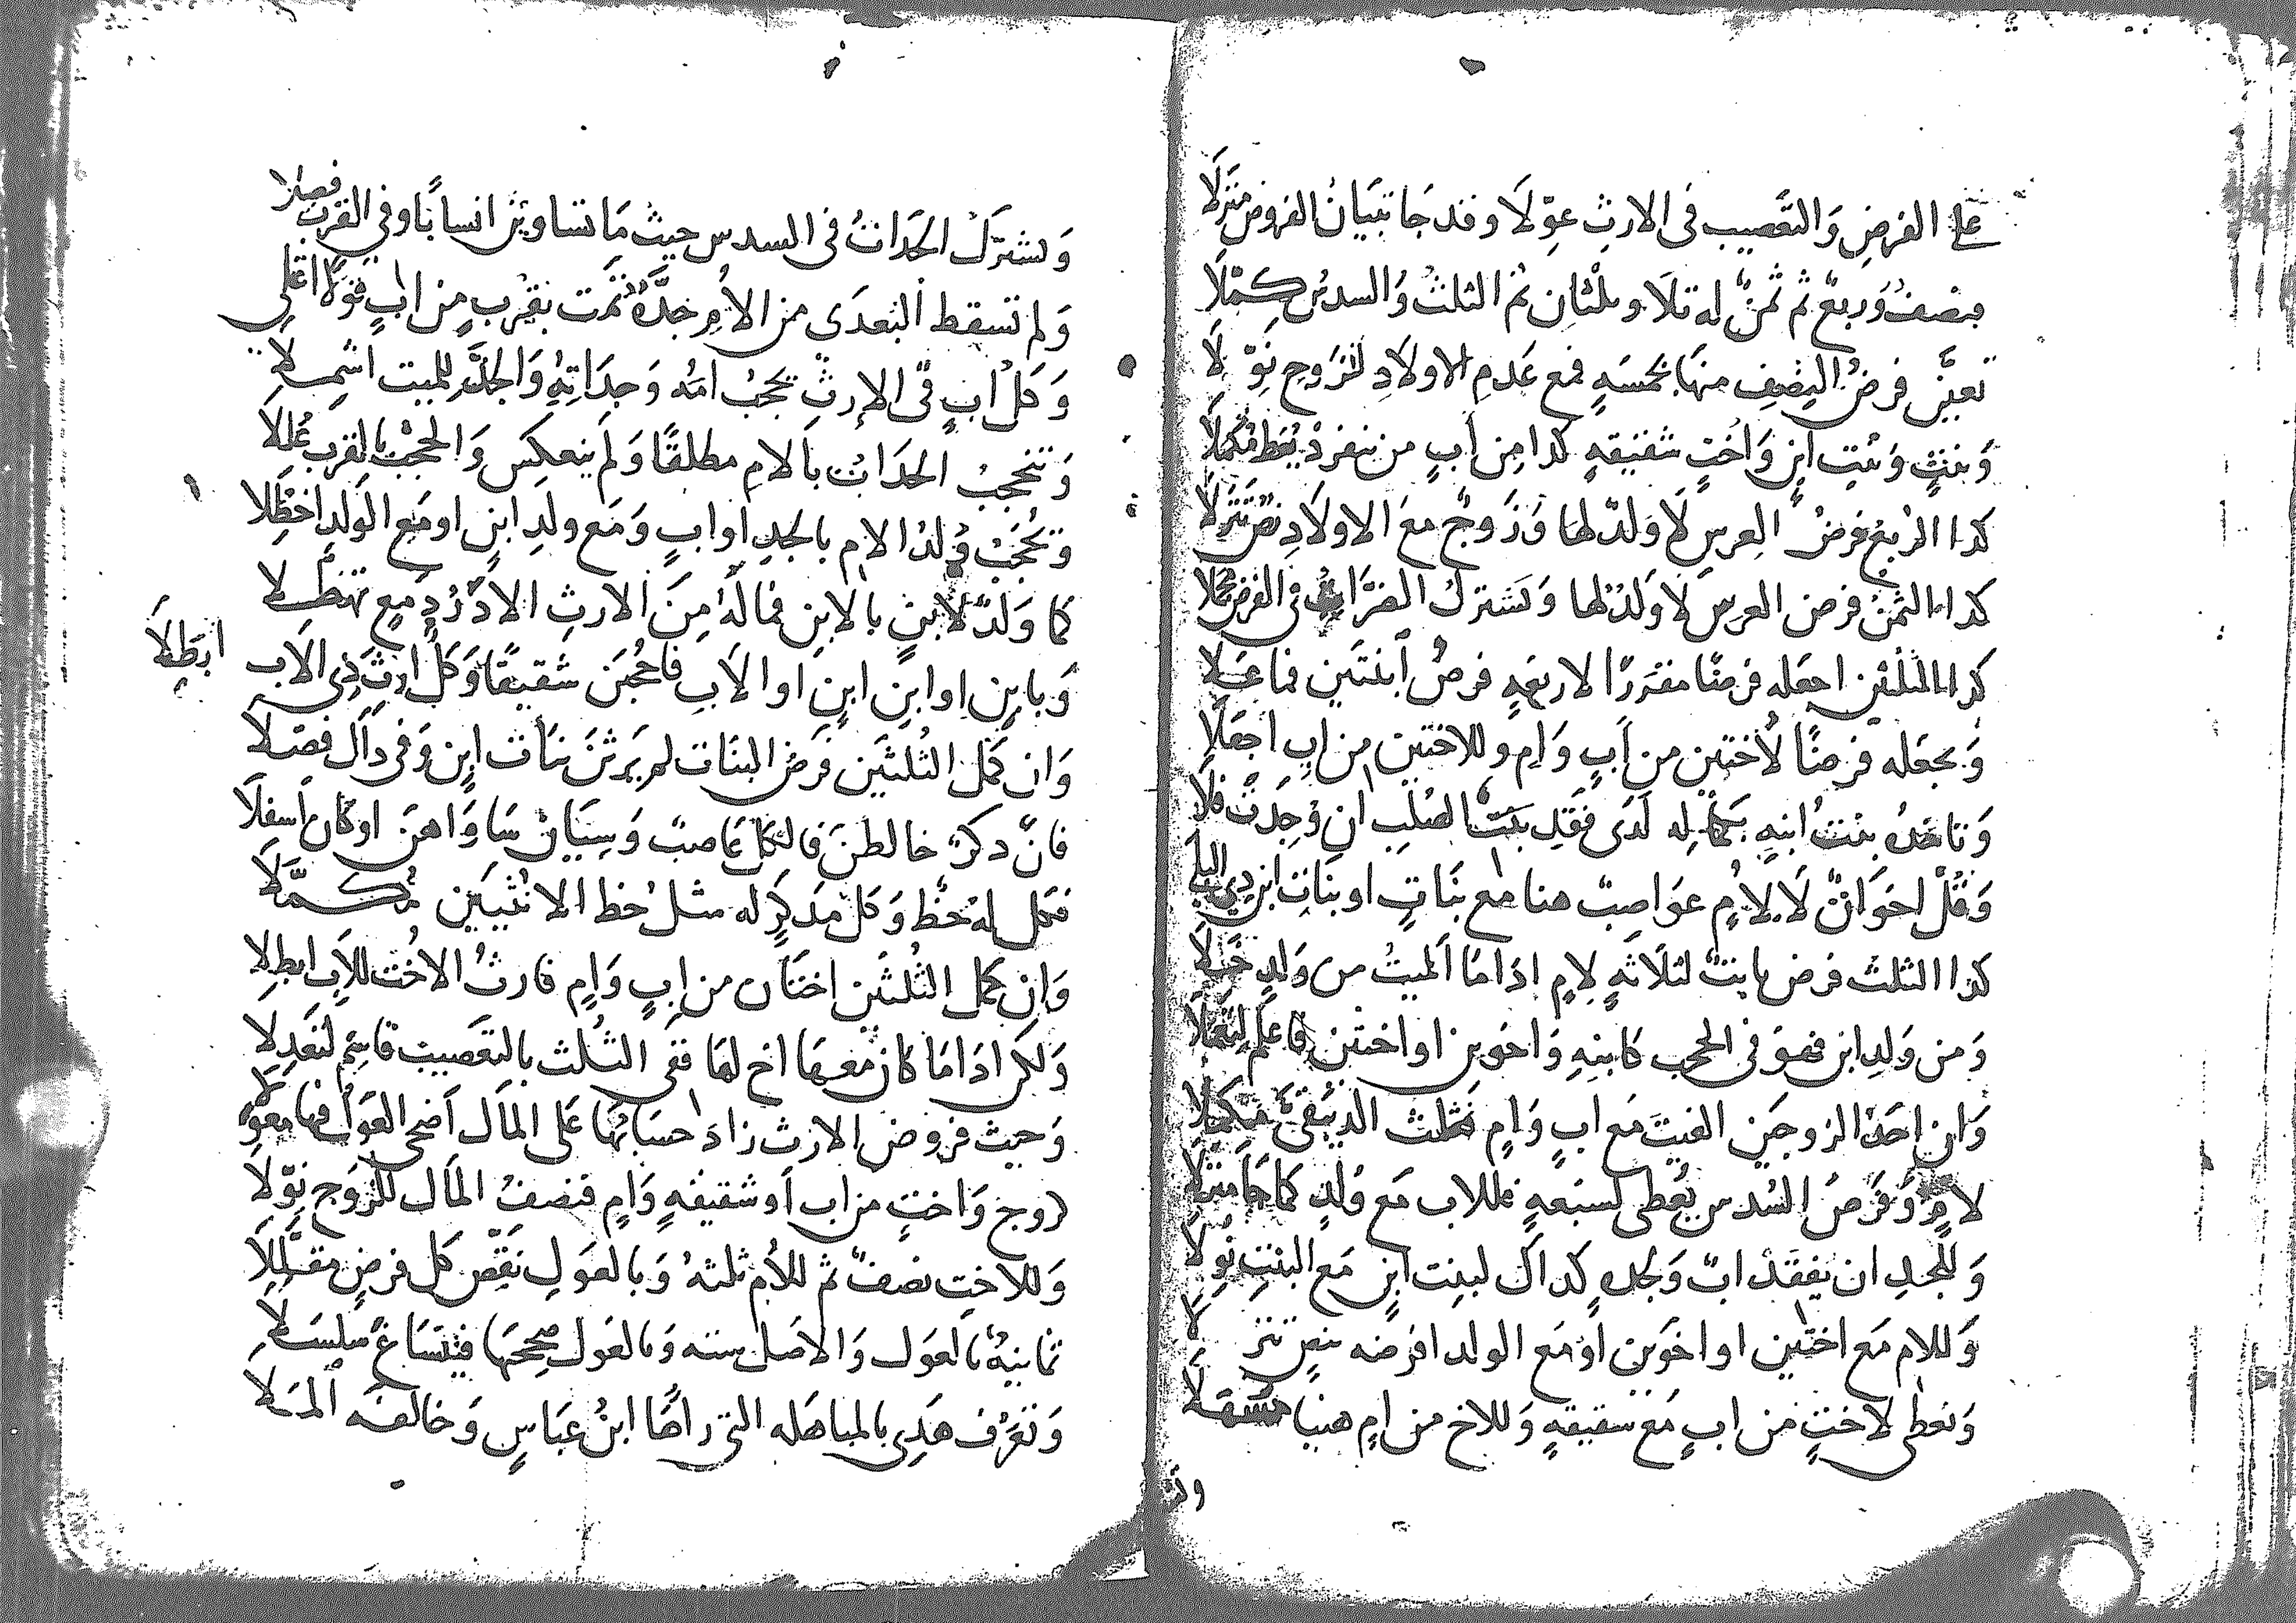 على الفرضِ وَالتَّعصيب فى الارثِ عوّلَا وقد جَا تبيَانُ الفروض منزلَا
فنصفُ وَربعٌ ثم ثمنٌ له تلَا وثلثان ثم الثلثُ وَالسدسُ كمّلَا
تعيّن فرضُ النصفِ منها بخمسَهٍ فمع عَدمِ الاولادِ للزوجِ نوّلَا
وَبنتٍ وَبنتِ ابنٍ وَاختٍ شقيقهٍ كذا مِن ابٍ من ينفردْ يُعط مُكمَلَا
كذا الربع فرضُ العِرسِ لَا وَلدٌ لها وَزَوجٌ معَ الاولَادِ نصٌّ تنزلَا
كذا الثمنُ فرض العرسِ لَا وَلدٌ لها وَتشتركُ الضرَّاتُ فى الفرض
كذا الثلثين اجعله فرضًا مقررًا لاربعهٍ فرضُ ابنتَين فما عَلَا
وَيجعَله فرضًا لأختين من ابٍ وَامٍ وللاختين من ابٍ اجعَلَا
وَتاخذُه بنتُ ابنهِ بكمَاله لَدَى فقدِ بنتٍ الصُلبِ ان وُجدَتْ فلَا
وَقُلْ اخوَاتٌ لَا لِأُمٍ عوَاصِبٌ هنا مع بنَاتٍ او بنَاتِ ابن ذى البلى
كذا الثلث فرض ثابتٌ لثلَاثهٍ لِامٍ اذا مَا الميتُ من وَلدٍ خَلَا
وَمن وَلدِ ابن فهوَ فى الحجب كابنهِ وَاخوَين او اختين فاعلم لتعمَلَا
وَان احَدُ الزوجَين الفيتَ مَع ابٍ وَامٍ فثلث الذ يبقىَ مكملَا
لامٍ وَفَرضُ السُدس يُعطى لسبعهٍ فللاب مَع وُلدٍ كما جَا منزلَا
وَللجدِ ان يفقَدْ ابٌ وَجدهٍ كذاكَ لبنت ابنٍ مَع البنتِ نوّلَا
وَللام مَع اختين او اخوَين اوْ مَع الولد افرضه بنصٍ تنزلَا
وَتعطى لاختٍ من ابٍ مَع شقيقهٍ وَللاخ من امٍ هنيا مسَهلَا
وَتشتركُ الجدَاتُ فى السدس حيث مَا تساوين انسابًا وفى القرب فصلَا
وَلم تسقط البُعدَى من الأمِ جدَّهٌ نمت بقربٍ من ابٍ قولا اعلى
وَكلُ ابٍ فى الإرثِ يحجبُ امهُ وَجدَاتِهِ وَالجدُّ للميت اشملَا
وَتنحجبُ الجدَاتُ بالامِ مطلقًا وَلم ينعكِس وَالحجبُ بالقرب عُللَا
وَيُحجَبُ وُلدُ الامِ بالجدِ او ابٍ وَمَع ولدِ ابنٍ او مَع الوَلدِ احظلَا
كما وَلدٌ لابنٍ بالابن فما لَهُ مِنَ الارثِ
وَبابنٍ او ابنِ ابنٍ او الأبِ فاحجُبَن شقيقًا وَكلُ ارث ذى الاب ابطلَا
وَان كمل الثُلثَين فرضُ البنَات لم يَرثنَ بنَات ابنٍ وَفى ذاك فصّلَا
فانْ ذكرٌ خالطنَ فالكل عَاصبٌ وَسِيَان سَاوَاهن او كَان اسفلَا
فكل له حظٌ وَكل مذكرٍ له مثل حظ الانثيَين مُكمَّلَا
وَان كمل الثُلثَين اختَان من ابٍ وَامٍ فارثُ الاخُت للاب ابطِلَا
وَلكن اذا مَا كان معهَا اخ لهَا ففى الثُلث بالتعصيب قاسَم لتعدِلَا
وَحيث فروض الارث زادَ حسَابُهَا عَلى المَال اضحى العَولُ فيهَا معوّلَا
زوج وَاختٍ من اب اَو شقيقهٍ وَامٍ فنصفُ المَال للزوَج نوّلَا
وَللاختِ نصفٌ ثم للأم ثلثهُ وَبالعَولِ نقِّص كل فرضٍ مقلَّلَا
ثمانيهٌ بالعَول وَالاصَل سته وَبالعَول صححهَا فينسَاغ سلسَلَا
وَتعرَف هَذِى بالمباهَله التى راهَا ابنُ عبَاسٍ وَخالفه الملَا